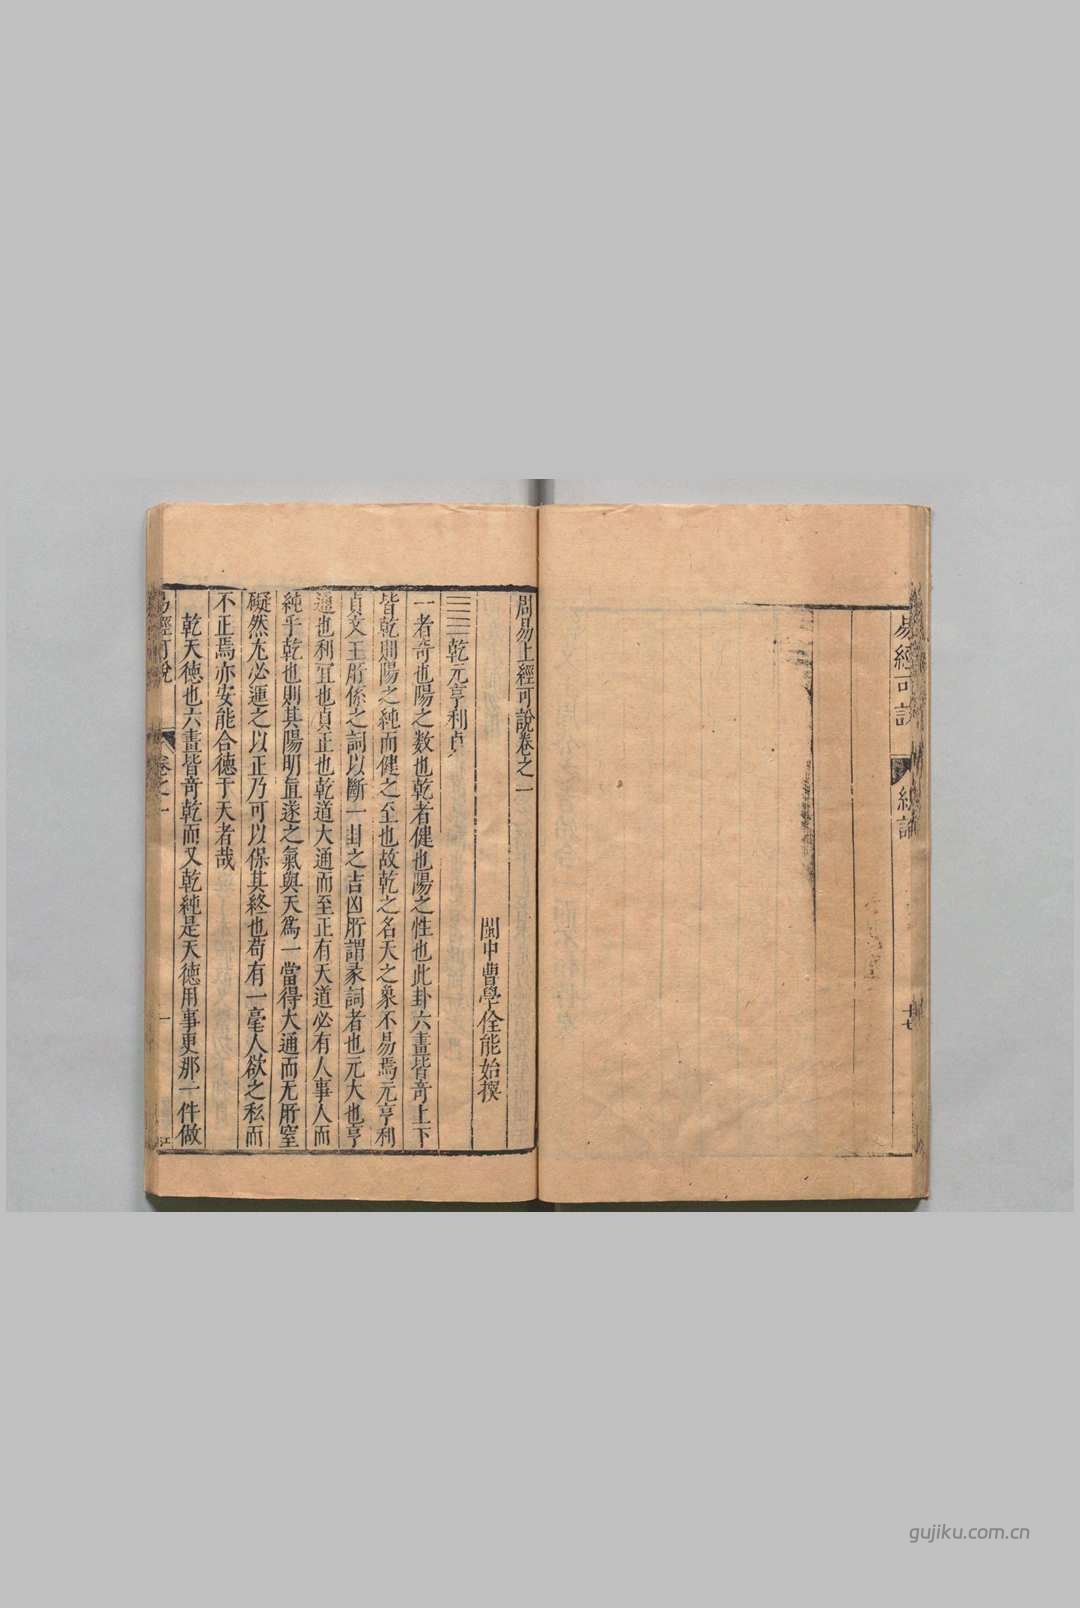 易經可說
總論
十七
周易上經可說卷之一
閩中曹學佺能始撰
☰☰乾元亨利貞
一者奇也陽之數也乾者健也陽之性也此卦六畫皆奇上下
皆乾則陽之純而健之至也故乾之名天之象不易焉元亨利
貞文王所係之詞以斷一卦之吉凶所謂彖詞者也元大也亨
通也利宜也貞正也乾道大通而至正有天道必有人事人而
純乎乾也則其陽明直遂之氣與天爲一當得大通而无所窒
礙然尤必運之以正乃可以保其終也苟有一毫人欲之私而
不正焉亦安能合德于天者哉
乾天德也六畫皆奇乾而又乾純是天德用事更那一件做
易經可說
卷之一
一
江